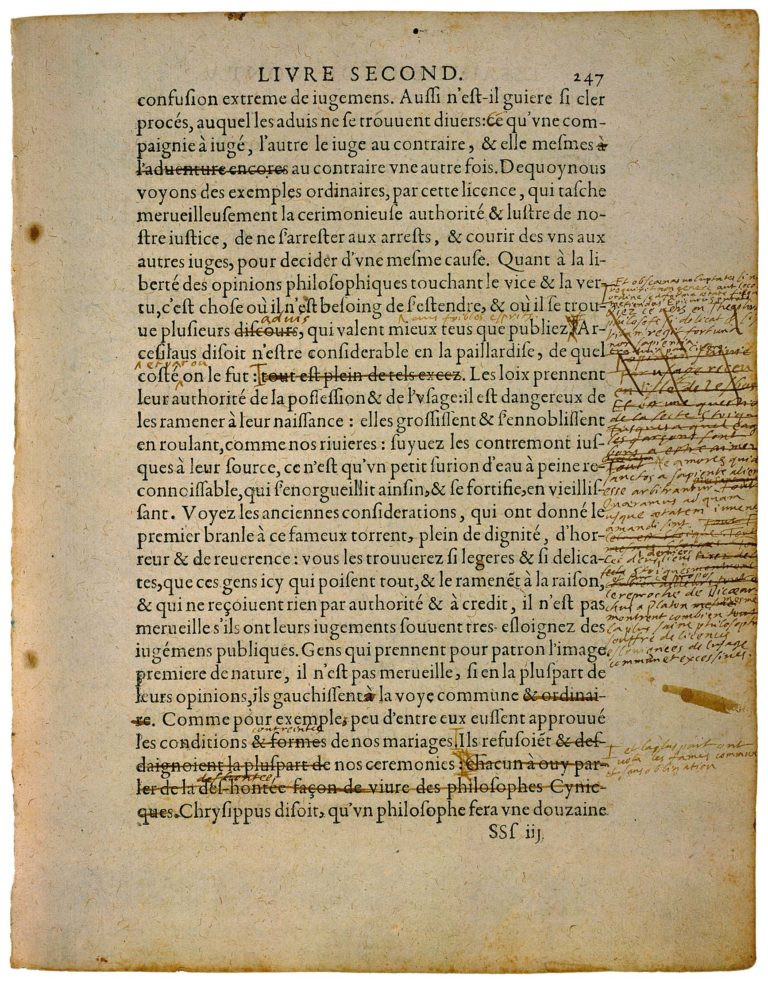 LIVRE SECOND. 247
confusion extreme de iugemens. Aussi n'est-il guiere si cler
procés, auquel les aduis ne se trouuent diuers: ce qu'vne com-
paignie à iugé, l'autre le iuge au contraire, & elle mesmes à
l'aduenture encores au contraire vne autre fois. Dequoy nous
voyons des exemples ordinaires, par cette licence, qui tasche
merueilleusement la cerimonieuse authorité & lustre de no-
stre iustice, de ne s'arrester aux arrests, & courir des vns aux
autres iuges, pour decider d'vne mesme cause. Quant à la li-
berté des opinions philosophiques touchant le vice & la ver-
tu, c'est chose où il n'est besoing de s'estendre, & où il se trou-
aduis
ue plusieurs discours, qui valent mieux teus que publiez. Ar-
cesilaus disoit n'estre considerable en la paillardise, de quel
costé on le fut: tout est plein de tels excez. Les loix prennent
leur authorité de la possession & de l'vsage: il est dangereux de
les ramener à leur naissance: elles grossissent & s'ennoblissent
en roulant, comme nos riuieres: suyuez les contremont ius-
ques à leur source, ce n'est qu'vn petit surion d'eau à peine re-
connoissable, qui s'enorgueillit ainsin, & se fortifie, en vieillis-
sant. Voyez les anciennes considerations, qui ont donné le
premier branle à ce fameux torrent, plein de dignité, d'hor-
reur & de reuerence: vous les trouuerez si legeres & si delica-
tes, que ces gens icy qui poisent tout, & le ramenẽt à la raison,
& qui ne reçoiuent rien par authorité & à credit, il n'est pas
merueille s'ils ont leurs iugements souuent tres-esloignez des
iugémens publiques. Gens qui prennent pour patron l'image
premiere de nature, il n'est pas merueille, si en la pluspart de
leurs opinions, ils gauchissent à la voye commune & ordinai-
re. Comme pour exemple, peu d'entre eux eussent approuué
contreintes
les conditions & formes de nos mariages. Ils refusoiẽt & des-
daignoient la pluspart de nos ceremonies: Chacun à ouy par-
deshontee
ler de la des-hontée façon de viure des philosophes Cynic-
ques. Chrysippus disoit, qu'vn philosophe fera vne douzaine
SSs iij
de amores quidem
sanctos a sapiente alienos
esse arbitrantur
Quaeramus ad quam
usque aetatem iuuenes
amandi sint
le reproche de Dicaear
chus a Platon
montrent combien
la plus saine philosophie
souffre de licences
esloignees de l'usage
commun et excessiues
et la plus part ont
voulu les fames communes
et sans obligation